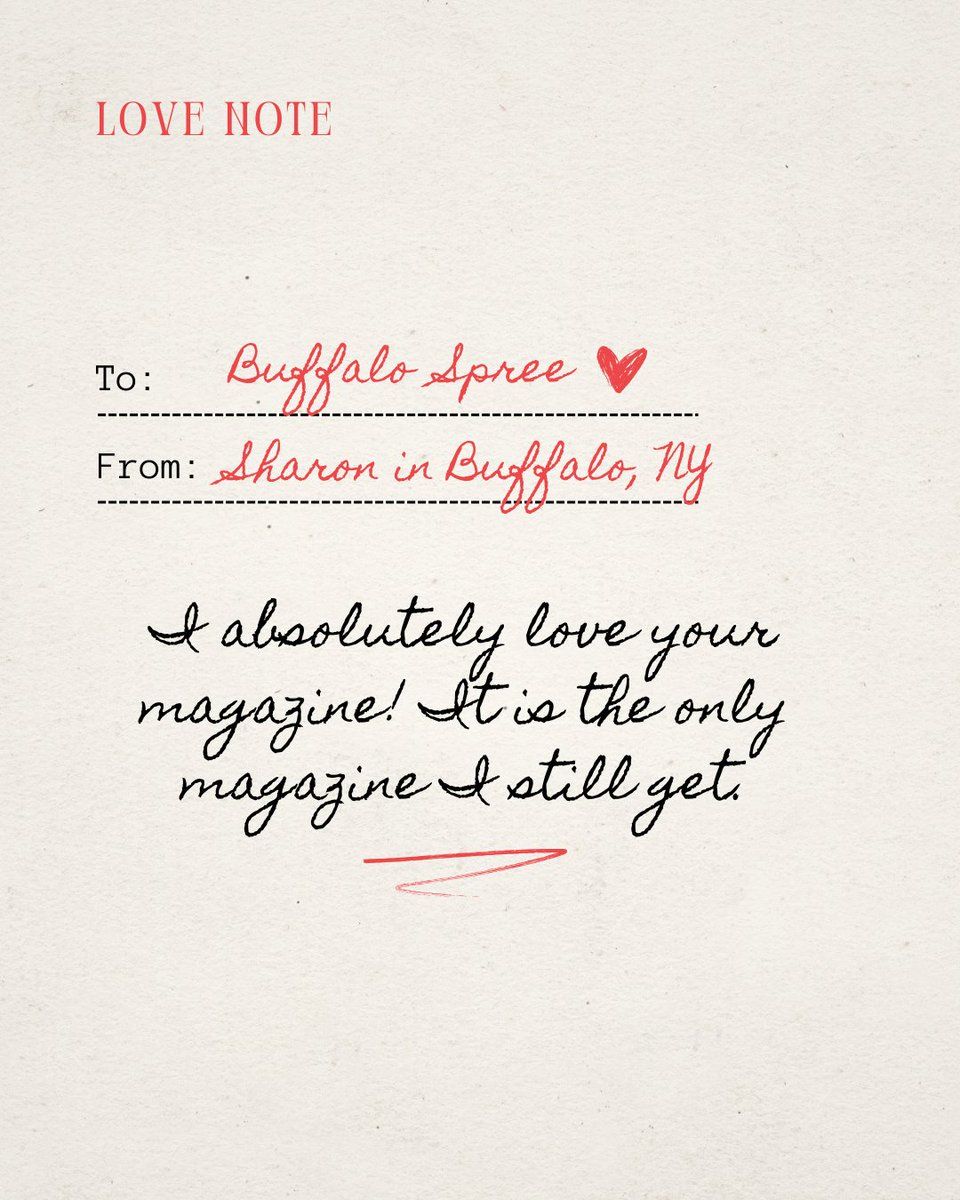 LOVE NOTE
To: Buffalo Spree
From: Sharon in Buffalo, NY
I absolutely love your
magazine! It is the only
magazine I still get.